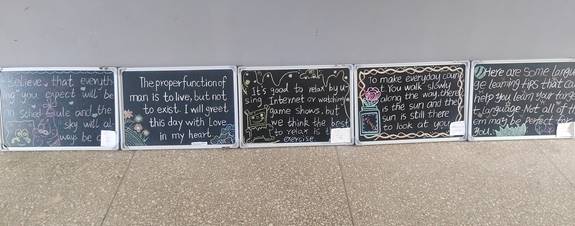 believe that everyth
ing you expect will be
and the
sky will al
ways be
The proper function of
man is to live, but not
to exist. I will greet
this day with love
in my heart.
It's good to relax by u-
sing Internet or watching
game shows, but
we think the best
to relax is
exersise
To make everyday coun
t. You walk slowly
along the way, there
is the sun and the
sun is still there
to look at you
Here are some langu
ge learning tips that ca
help you learn your new
language. Not all of th
em may be perfect for
you,